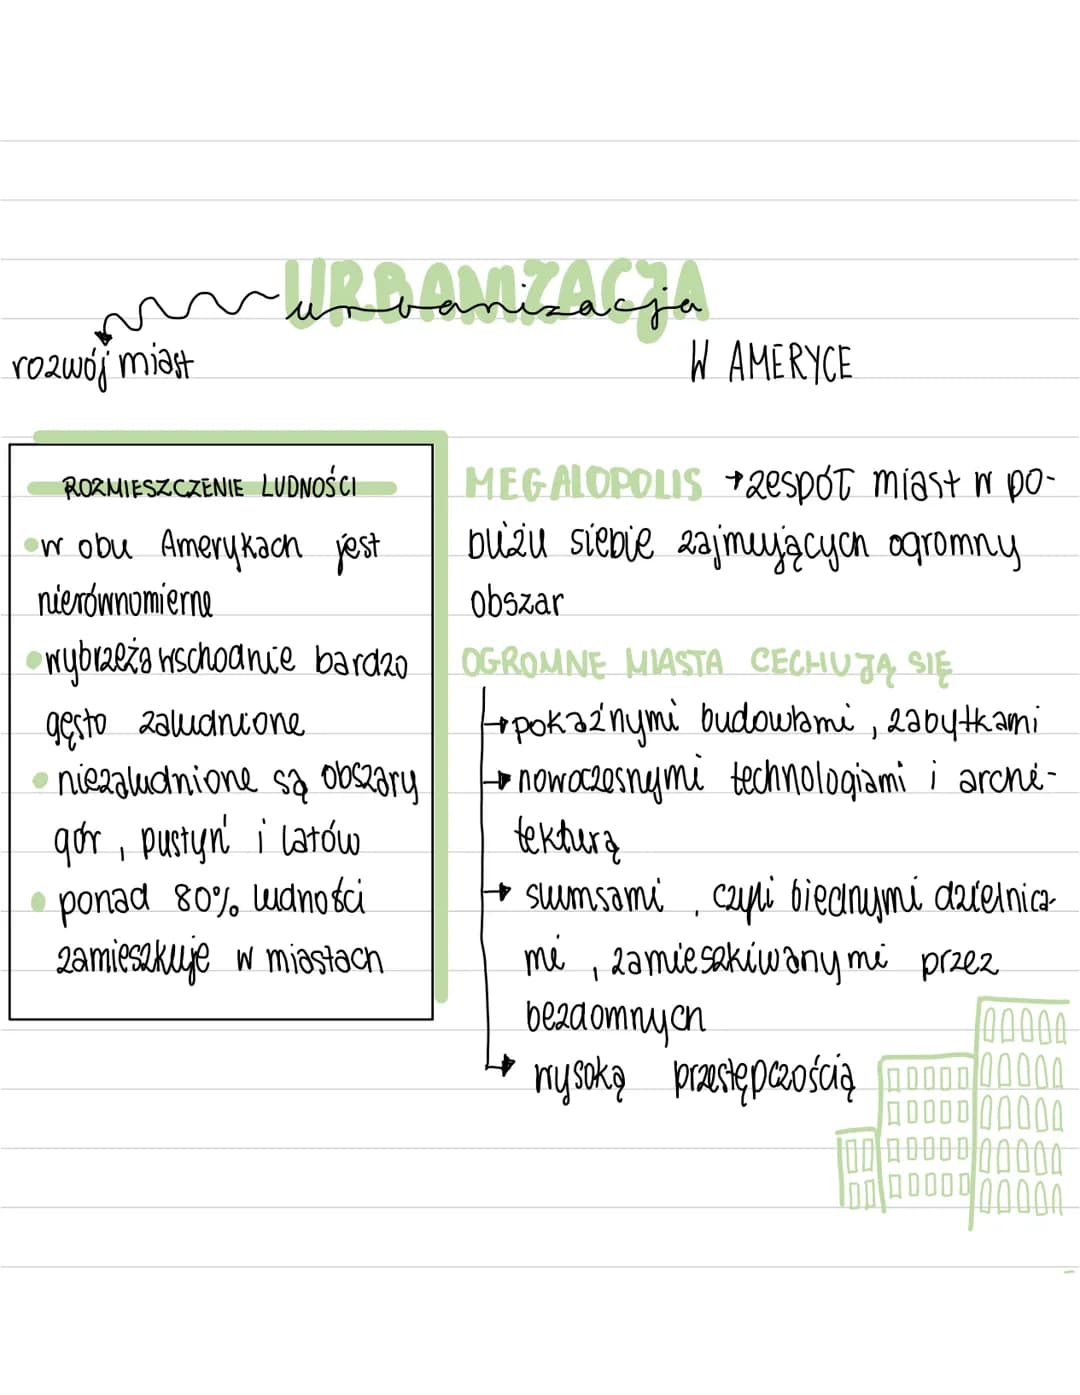 URBANIZACJA
urbanizacja
rozwój miast
W AMERYCE
ROZMIESZCZENIE LUDNOŚCI
w obu Amerykach jest
nierównomierne
wybrzeża wschodnie bardzo
gęsto zaludnione
niezaludnione są obszary
gór, pustyń i latów
ponad 80% ludności
zamieszkuje w miastach
MEGALOPOLIS → zespół miast w po-
bliżu siebie zajmujących ogromny
obszar
OGROMNE MIASTA CECHUJĄ SIĘ
→ pokaźnymi budowlami, zabytkami
→ nowoczesnymi technologiami i archi-
tekturą
→ slumsami, czyli biednymi dzielnica-
mi, zamieszkiwanymi przez
bezdomnych
→ wysoką przestępczością